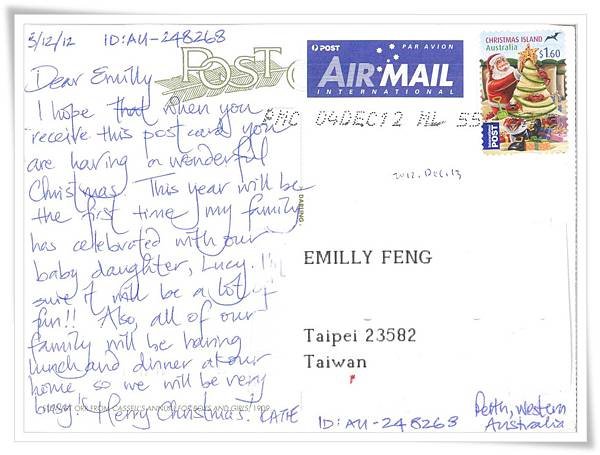 3/12/12 ID: AU-248268
POST
Dear Emilly
I hope that when you
receive this post card you
are having a wonderful
Christmas. This year will be
the first time my family
has celebrated with our
baby daughter, Lucy. I'll
sure it will be a lot of
fun!! Also, all of our
family will be having
lunch and dinner at our
home so we will be very
busy!! Merry Christmas! KATIE
POST PAR AVION
AIR MAIL
INTERNATIONAL
CHRISTMAS ISLAND
Australia
$1.60
International
POST
PMC 04DEC12 ML 55
2012.Dec.13
DARLING
EMILLY FENG
Taipei 23582
Taiwan
FROM CASSELL'S ANNUAL FOR BOYS AND GIRLS, 1909
ID: AU-248268
Perth, Western
Australia